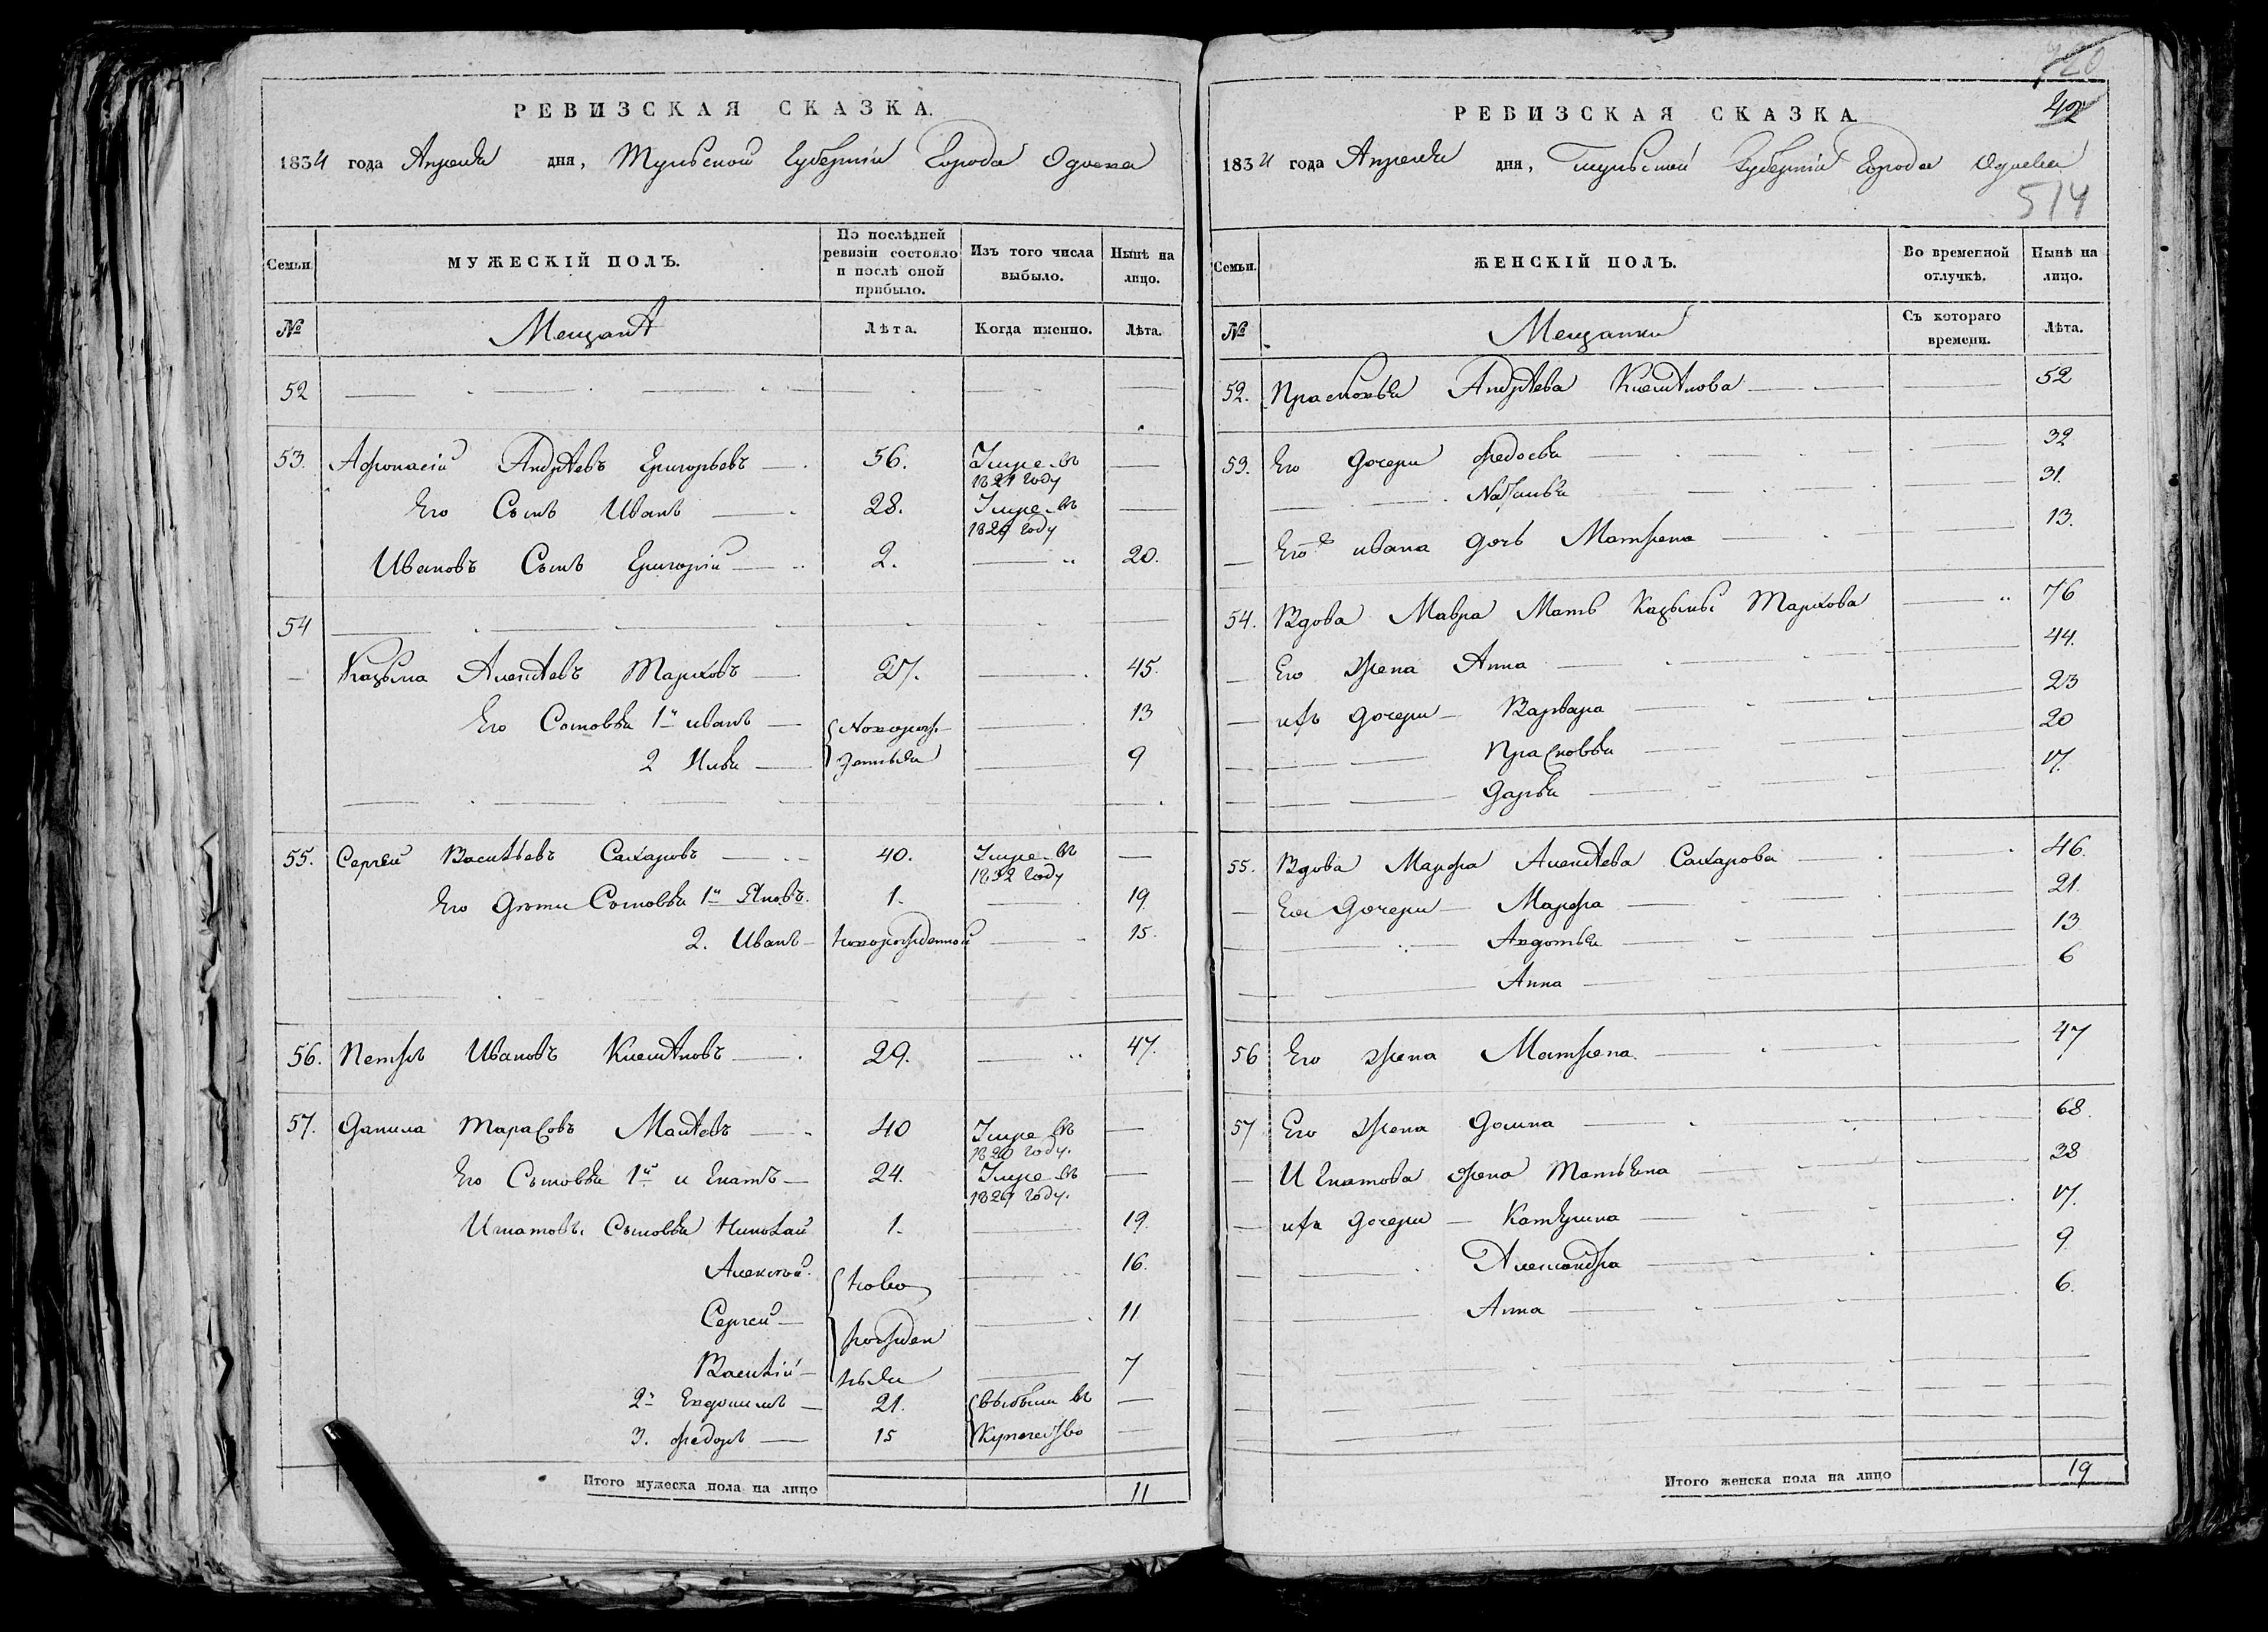 РЕВИЗСКАЯ СКАЗКА.
1834 года Апреля дня, Тульской Губернiи Города Одоева
Семьи.
МУЖЕСКІЙ ПОЛЪ.
По послѣдней ревизіи состояло и послѣ оной прибыло.
Изъ того числа выбыло.
Нынѣ на лицо.
№
Мещанѣ
Лѣта.
Когда именно.
Лѣта.
52
53. Афонасій Андрѣевъ Григорьевъ 56. Умре въ 1821 году
Его Сынъ Иванъ 28. Умре въ 1829 году
Ивановъ Сынъ Григорій 2. 20.
54
Казьма Алексѣевъ Марковъ 27. 45.
Его Сыновья 1й иванъ Новорож- 13
2 Илья денныя 9
55. Сергей Васильевъ Сахаровъ 40. Умре въ 1832 году
Его дети Сыновья 1й Яковъ. 1. 19.
2. Иванъ новорожденной 15.
56. Петръ Ивановъ 29. 47.
57. Данила Тарасовъ 40 Умре въ 1820 году.
Его Сыновья 1й игнатъ 24. Умре въ 1829 году.
Игнатовы Сыновья Николай 1. 19.
Алексѣй. ново 16.
Сергей рожден 11
Василій ныя 7
2й Евдокимъ 21. выбыли въ
3. Федоръ 15 Купечество
Итого мужеска пола на лицо 11
720
42
РЕВИЗСКАЯ СКАЗКА.
1834 года Апреля дня, Тульской Губерніи Города Одоева
514
Семьи.
ЖЕНСКІЙ ПОЛЪ.
Во временной отлучкѣ.
Нынѣ на лицо.
№
Мещанки
Съ котораго времени.
Лѣта.
52. Прасковья Андрѣева 52
53. Его дочери Федосья 32
Наталья 31.
Его ивана дочь Матрена 13.
54. Вдова Мавра Мать Казьмы Маркова 76
Его Жена Анна 44.
ихъ дочери Варвара 23
Прасковья 20
Дарья 17.
55. Вдова Марфа Алексѣева Сахарова 46.
Ея дочери Марфа 21.
Авдотья 13
Анна 6
56 Его жена Матрена 47
57 Его Жена Домна 68.
Игнатова жена Татьяна 38
ихъ дочери Катерина 17.
Александра 9
Анна 6.
Итого женска пола на лицо 19